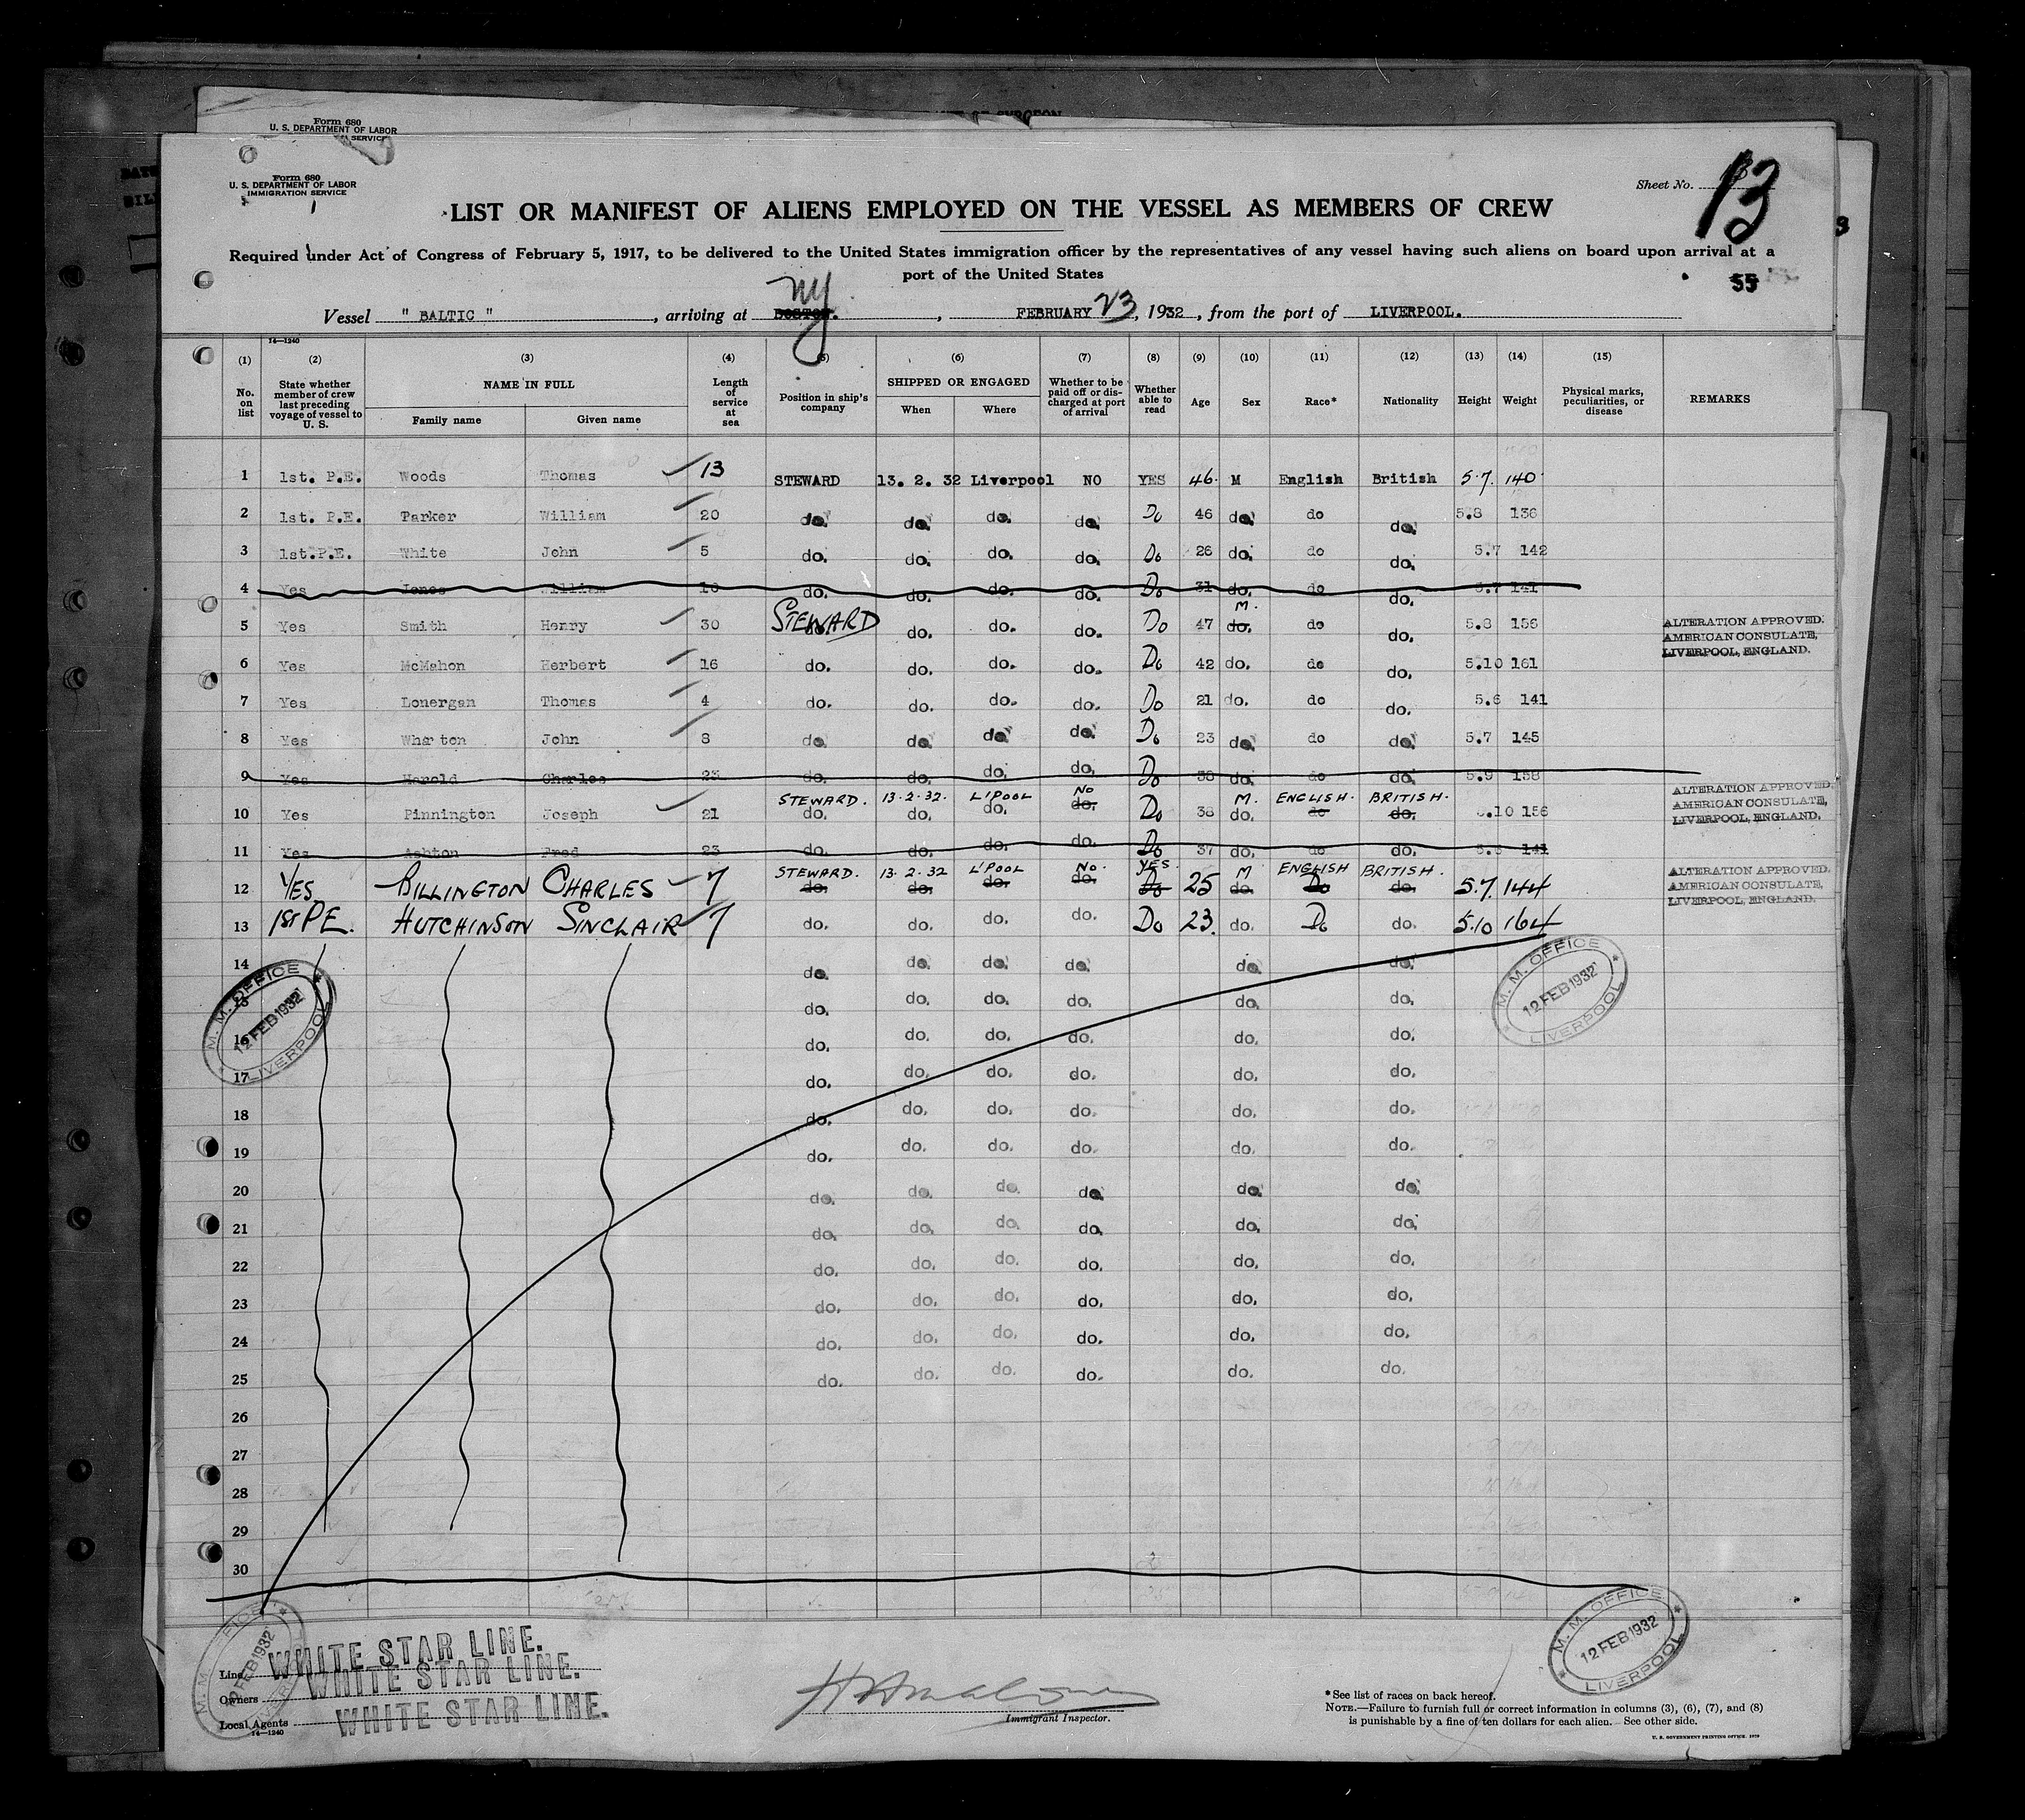 Form 680
U. S. DEPARTMENT OF LABOR
SERVICE
Form 680
U. S. DEPARTMENT OF LABOR
IMMIGRATION SERVICE
Sheet No. 13
LIST OR MANIFEST OF ALIENS EMPLOYED ON THE VESSEL AS MEMBERS OF CREW
Required under Act of Congress of February 5, 1917, to be delivered to the United States immigration officer by the representatives of any vessel having such aliens on board upon arrival at a
port of the United States
55
NY
Vessel " BALTIC ", arriving at BOSTON., FEBRUARY 23, 1932, from the port of LIVERPOOL.
14—1240
(1) (2) (3) (4) (5) (6) (7) (8) (9) (10) (11) (12) (13) (14) (15)
No. on list State whether member of crew last preceding voyage of vessel to U. S. NAME IN FULL Family name Given name Length of service at sea Position in ship's company SHIPPED OR ENGAGED When Where Whether to be paid off or discharged at port of arrival Whether able to read Age Sex Race* Nationality Height Weight Physical marks, peculiarities, or disease REMARKS
1 1st. P.E. Woods Thomas 13 STEWARD 13. 2. 32 Liverpool NO YES 46. M English British 5.7. 140.
2 1st. P.E. Parker William 20 do. do. do. do. Do 46 do. do do. 5.8 136
3 1st.P.E. White John 5 do. do. do. do. Do 26 do. do do. 5.7 142
4 Yes Jones William 16 do. do. do. do. Do 31 do. do do. 5.7 141
5 Yes Smith Henry 30 STEWARD do. do. do. do. Do 47 M. do. do do. 5.8 156 ALTERATION APPROVED.
AMERICAN CONSULATE,
LIVERPOOL, ENGLAND.
6 Yes McMahon Herbert 16 do. do. do. do. Do 42 do. do do. 5.10 161
7 Yes Lonergan Thomas 4 do. do. do. do. Do 21 do. do do. 5.6 141
8 Yes Wharton John 8 do. do. do. do. Do 23 do. do do. 5.7 145
9 Yes Harold Charles 23 do. do. do. do. Do 38 do. do do. 5.9 138
STEWARD. 13.2.32. L'POOL NO M. ENGLISH. BRITISH.
10 Yes Pinnington Joseph 21 do. do. do. do. Do 38 do. do do. 5.10 156 ALTERATION APPROVED.
AMERICAN CONSULATE,
LIVERPOOL, ENGLAND.
11 Yes Ashton Fred 23 do. do. do. do. Do 37 do. do do. 5.5 141
STEWARD. 13.2.32 L'POOL NO. YES. M ENGLISH BRITISH.
12 YES BILLINGTON CHARLES 7 do. do. do. do. Do 25 do. Do do. 5.7. 144 ALTERATION APPROVED.
AMERICAN CONSULATE,
LIVERPOOL, ENGLAND.
13 1ST PE. HUTCHINSON SINCLAIR 7 do. do. do. do. Do 23. do. Do do. 5.10 164
14 do. do. do. do. do. do.
15 do. do. do. do. do. do.
16 do. do. do. do. do. do.
17 do. do. do. do. do. do.
18 do. do. do. do. do. do.
19 do. do. do. do. do. do.
20 do. do. do. do. do. do.
21 do. do. do. do. do. do.
22 do. do. do. do. do. do.
23 do. do. do. do. do. do.
24 do. do. do. do. do. do.
25 do. do. do. do. do. do.
26
27
28
29
30
M. M. OFFICE 12 FEB 1932 LIVERPOOL
M. M. OFFICE 12 FEB 1932 LIVERPOOL
M. M. OFFICE 12 FEB 1932 LIVERPOOL
M. M. OFFICE 12 FEB 1932 LIVERPOOL
Line WHITE STAR LINE.
Owners WHITE STAR LINE.
Local Agents WHITE STAR LINE.
14—1240
Immigrant Inspector.
*See list of races on back hereof.
NOTE.—Failure to furnish full or correct information in columns (3), (6), (7), and (8)
is punishable by a fine of ten dollars for each alien. See other side.
U. S. GOVERNMENT PRINTING OFFICE. 1929